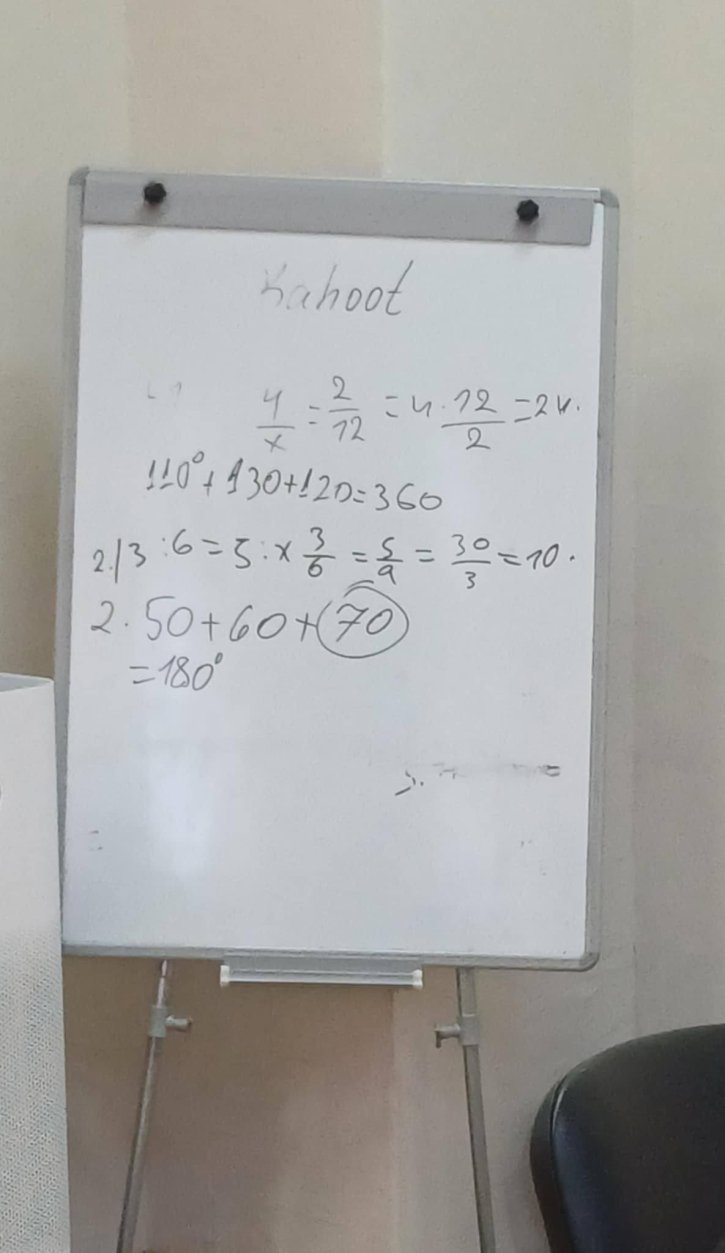 Kahoot
4/x = 2/12 = 4·12/2 = 24.
110° + 130 + 120 = 360
2.) 3 : 6 = 5 : x 3/6 = 5/a = 30/3 = 10.
2. 50 + 60 + 70
= 180°